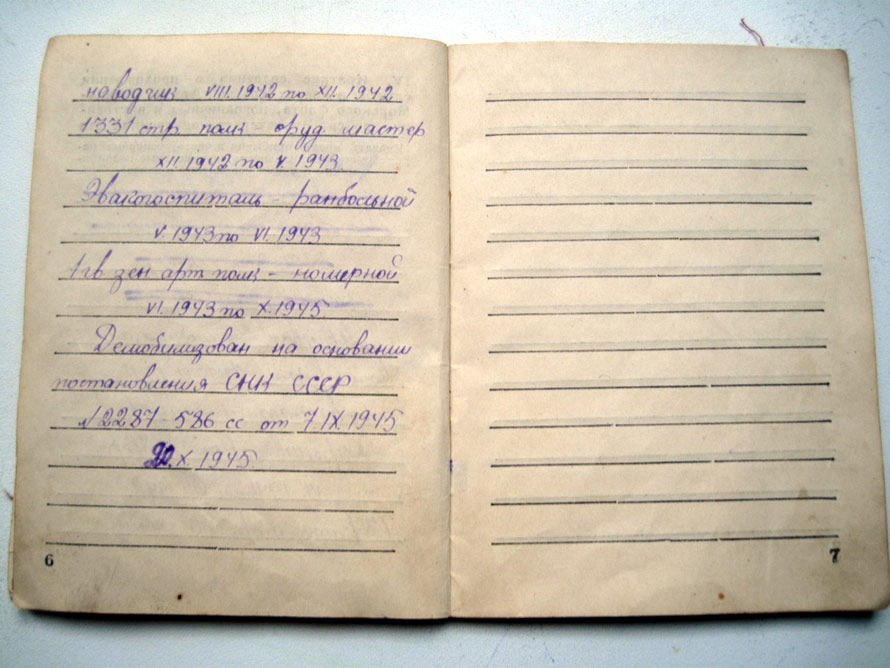 наводчик VIII.1942 по XII.1942
1331 стр. полк - оруд мастер
XII.1942 по V.1943
Эвакогоспиталь - ранбольной
V.1943 по VI.1943
1 гв зен арт полк - номерной
VI.1943 по X.1945
Демобилизован на основании
постановления СНК СССР
№2287-586 сс от 7 IX.1945
20.X.1945
6
7